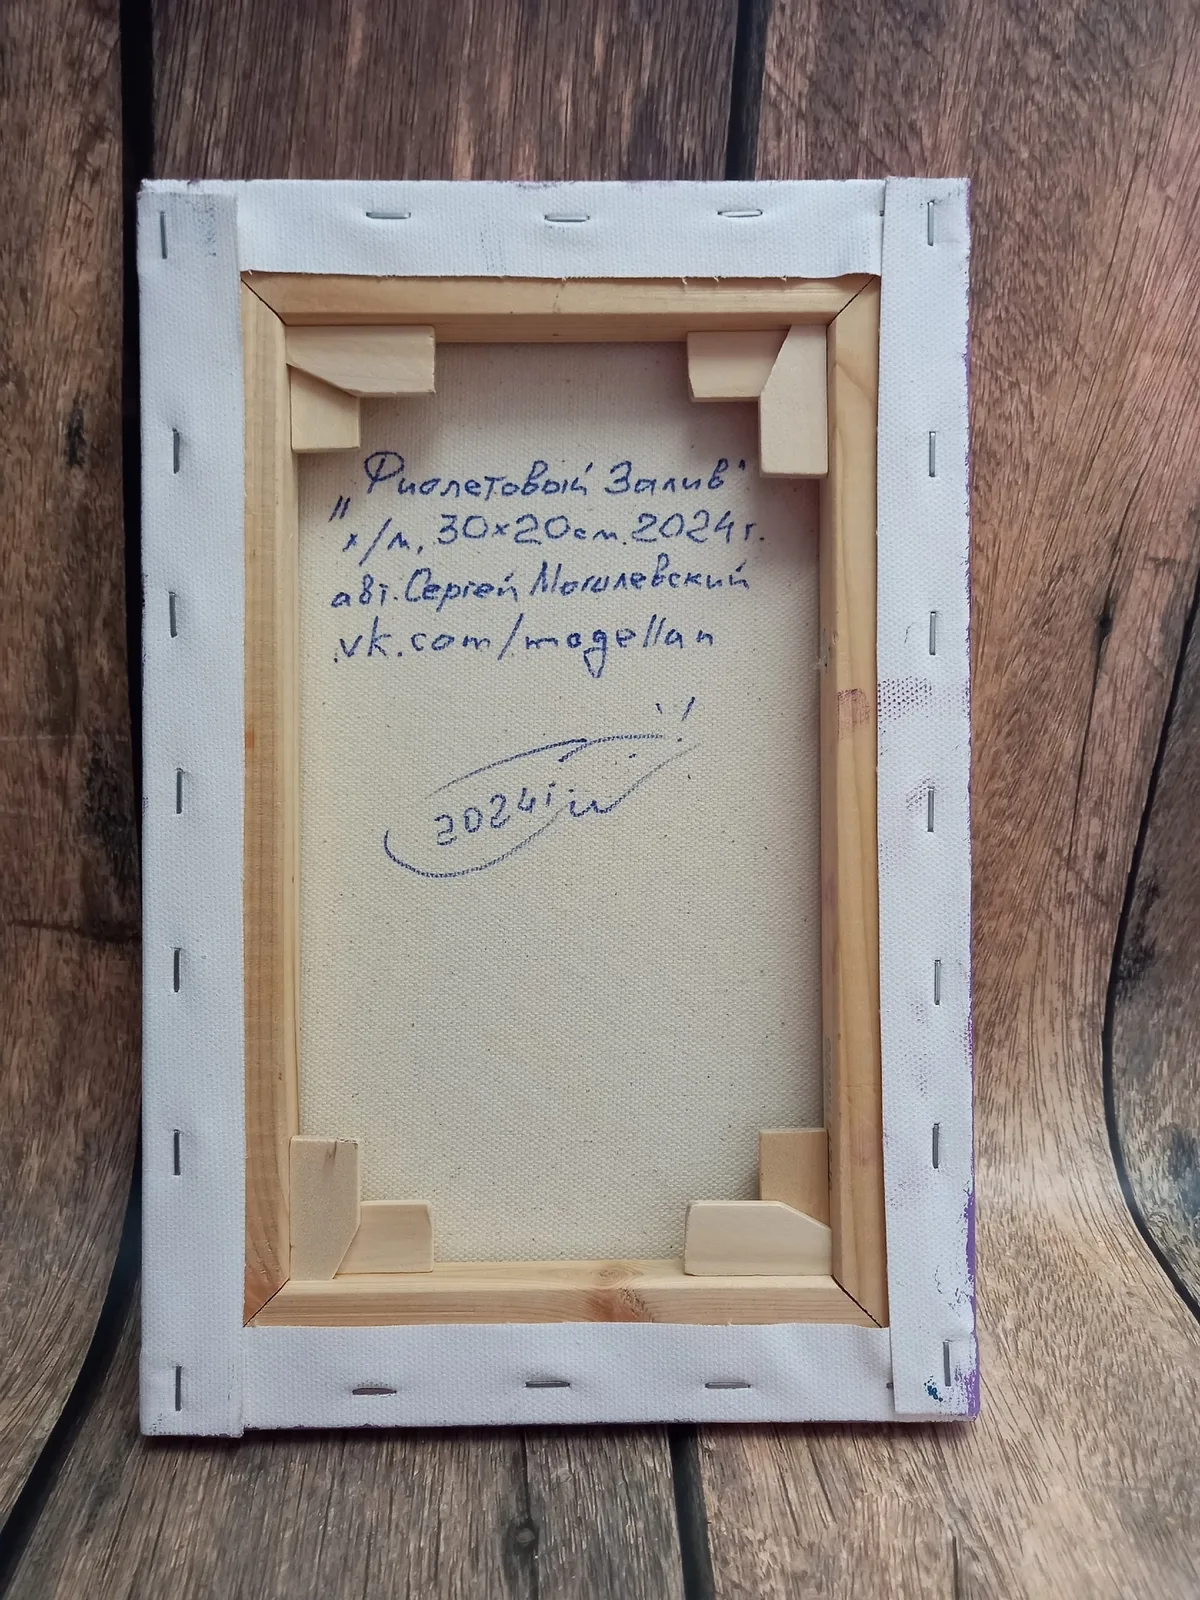 „Фиолетовый Залив"
х/м, 30×20см. 2024г.
авт. Сергей Могилевский
vk.com/mogellan
2024г.